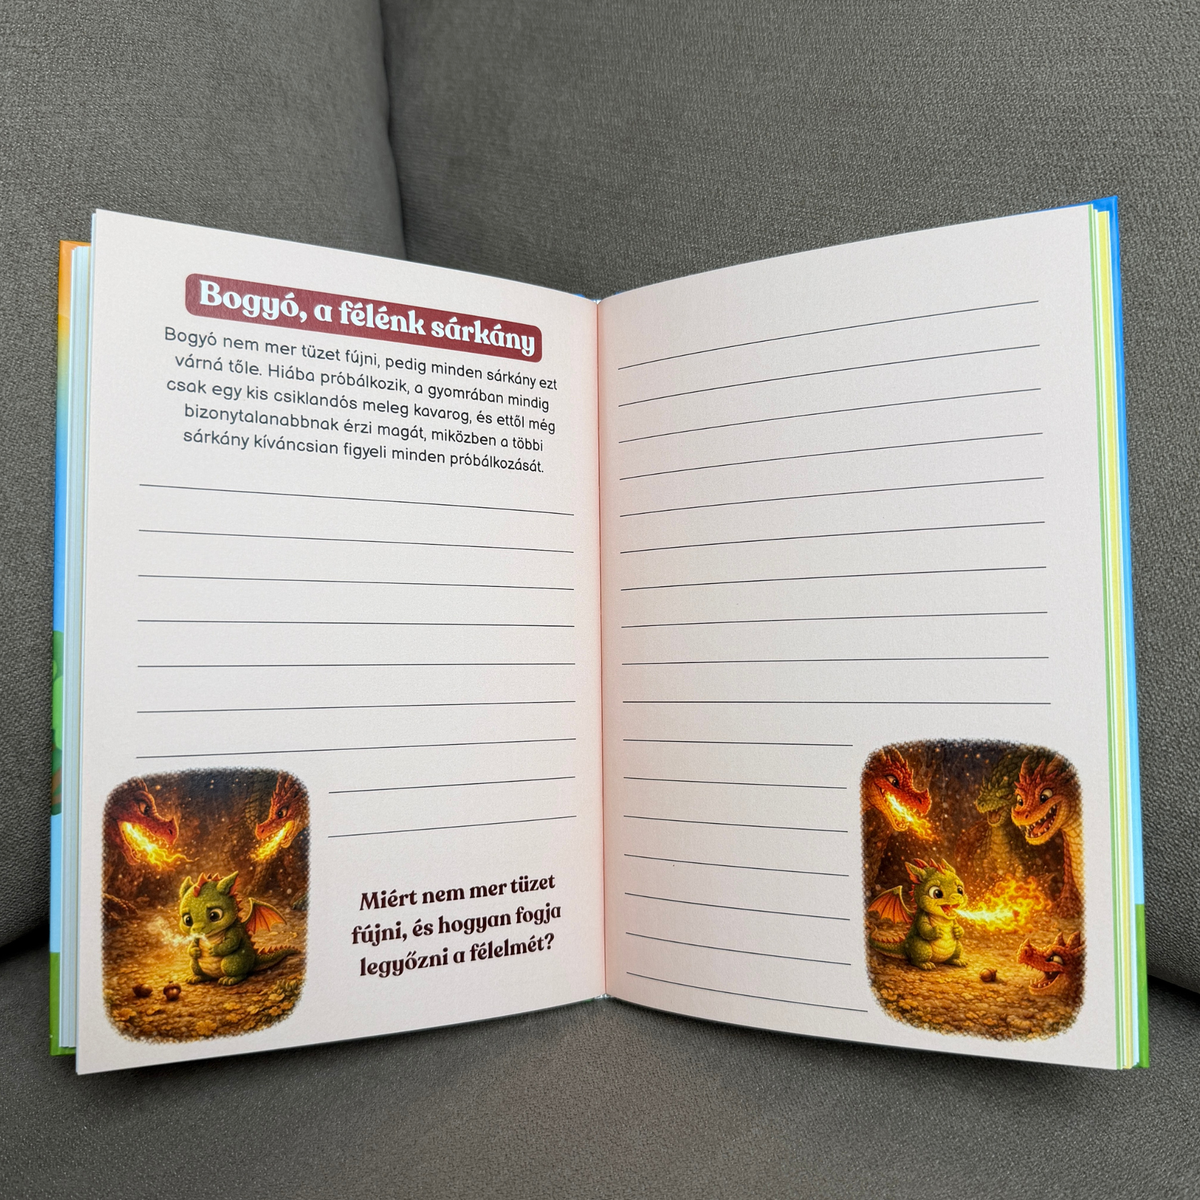 Bogyó, a félénk sárkány
Bogyó nem mer tüzet fújni, pedig minden sárkány ezt
várná tőle. Hiába próbálkozik, a gyomrában mindig
csak egy kis csiklandós meleg kavarog, és ettől még
bizonytalanabbnak érzi magát, miközben a többi
sárkány kíváncsian figyeli minden próbálkozását.
Miért nem mer tüzet
fújni, és hogyan fogja
legyőzni a félelmét?